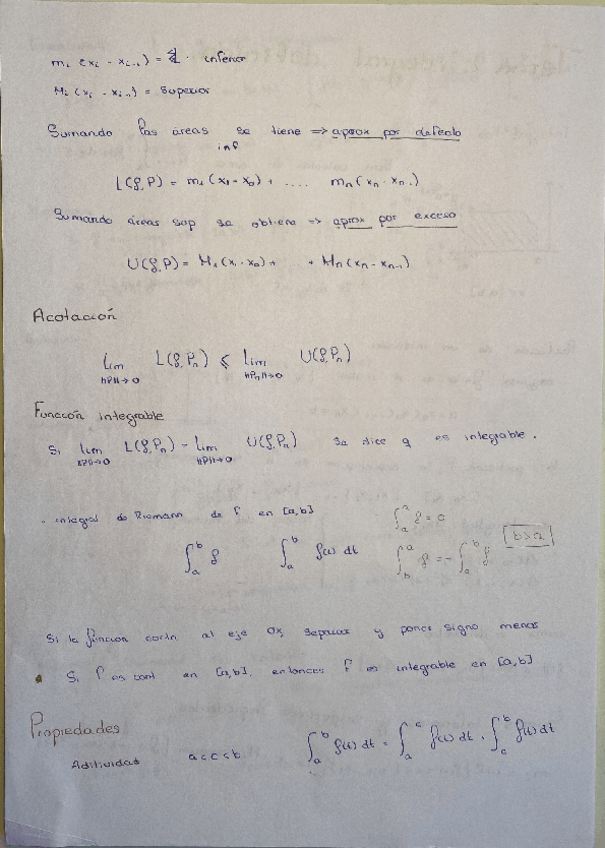 mᵢ (xᵢ - xᵢ₋₁) = inferior
Mᵢ (xᵢ - xᵢ₋₁) = Superior
Sumando las áreas se tiene => aprox por defecto
inf
L(f,P) = m₁(x₁ - x₀) + .... mₙ(xₙ - xₙ₋₁)
Sumando áreas sup se obtiene => aprox por exceso
U(f,P) = M₁(x₁ - x₀) + .. + Mₙ(xₙ - xₙ₋₁)
Acotación
lim L(f,Pₙ) ≤ lim U(f,Pₙ)
||P||→0 ||Pₙ||→0
Función integrable
Si lim L(f,Pₙ) = lim U(f,Pₙ) se dice q es integrable.
||P||→0 ||P||→0
. integral de Riemann de f en [a,b] ∫ₐᵃ f = 0
∫ₐᵇ f ∫ₐᵇ f(t) dt ∫_b^a f = - ∫ₐᵇ f b>a
Si la función corta al eje Ox, separar y poner signo menos
• Si f es cont en [a,b], entonces f es integrable en [a,b]
Propiedades
Aditividad a<c<b ∫ₐᵇ f(t) dt = ∫ₐᶜ f(t) dt + ∫_c^b f(t) dt